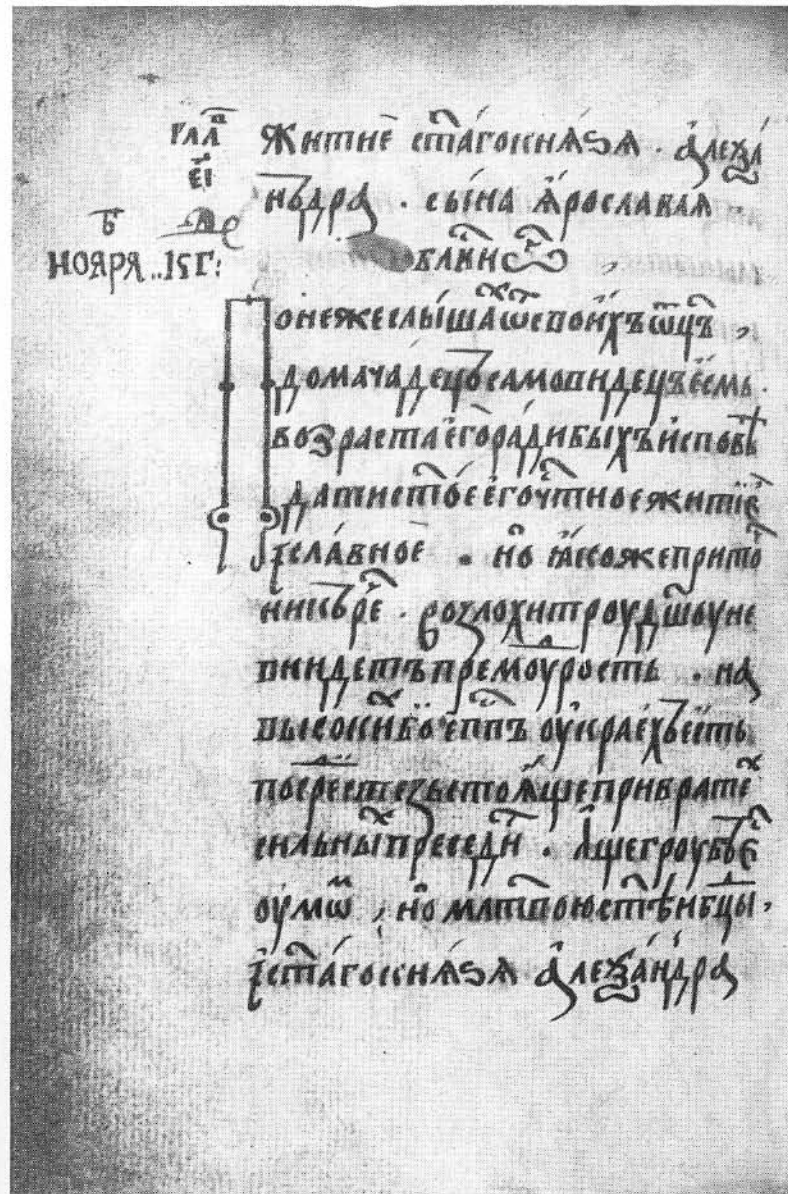 гла҃ в
є҃і
б҃
ноѧрѧ..15 г:
житиѐ ст҃а́гокнѧ́ѕѧ . а҆леѯа́
ньдра . сы́на ꙗ҆рославлѧ
бл҃ви ѿ҃
понежеслы́шаⷯ ѿсвои́хъ ѿц҃ъ ,
домача́децъ исамовидецъ є҆́смь .
во́зрастаєго̀ ра́дибы́хъ и҆сповѣ
датист҃о́е єгочⷭ҇тноежитїѐ
и҆сла́вноє . но̑ ꙗ҆́кожеприто́ⷱ
никъре́ⷱ . возлохи́троудш҃оуне
внидетъпремоу́рость . на
высоки́ⷯбоч҃еппъ оу҆краехъє҆́сть
посре́ⷣстезьстоѧ́щепривратеⷯ
сильны́ⷯпреседи́т . а҆́щегроубъєⷭ
оумо́ⷨ , но̑мл҃твоюст҃ѣи бц҃ы ,
и҆ст҃а́гокнѧ́ѕѧ а҆леѯа́ндра